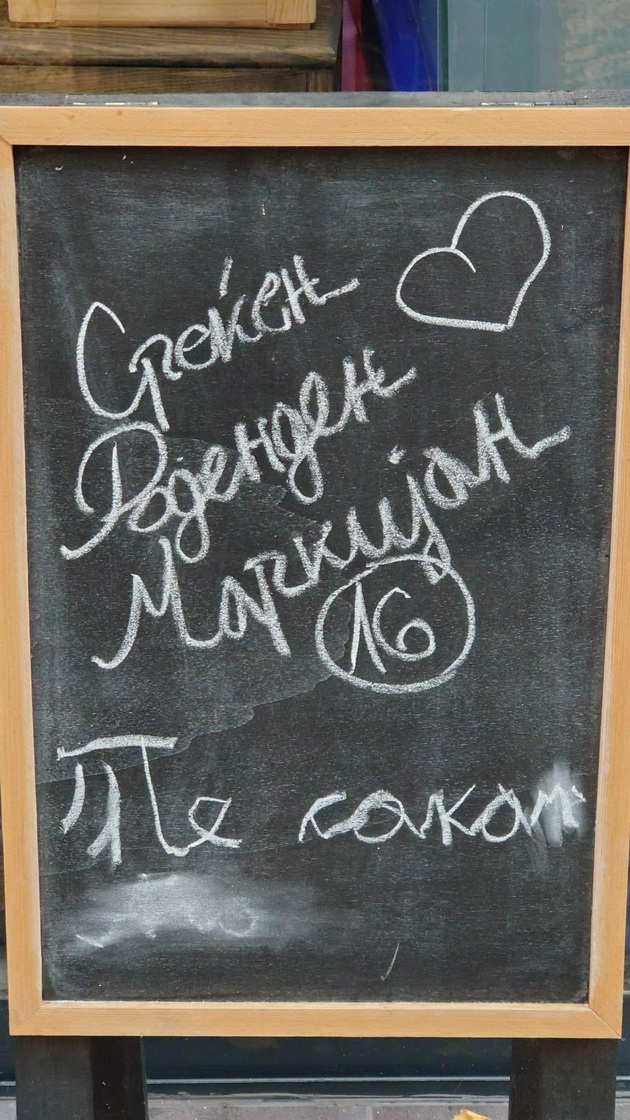 Среќен
Роденден
Маркијан
16
Те сакам